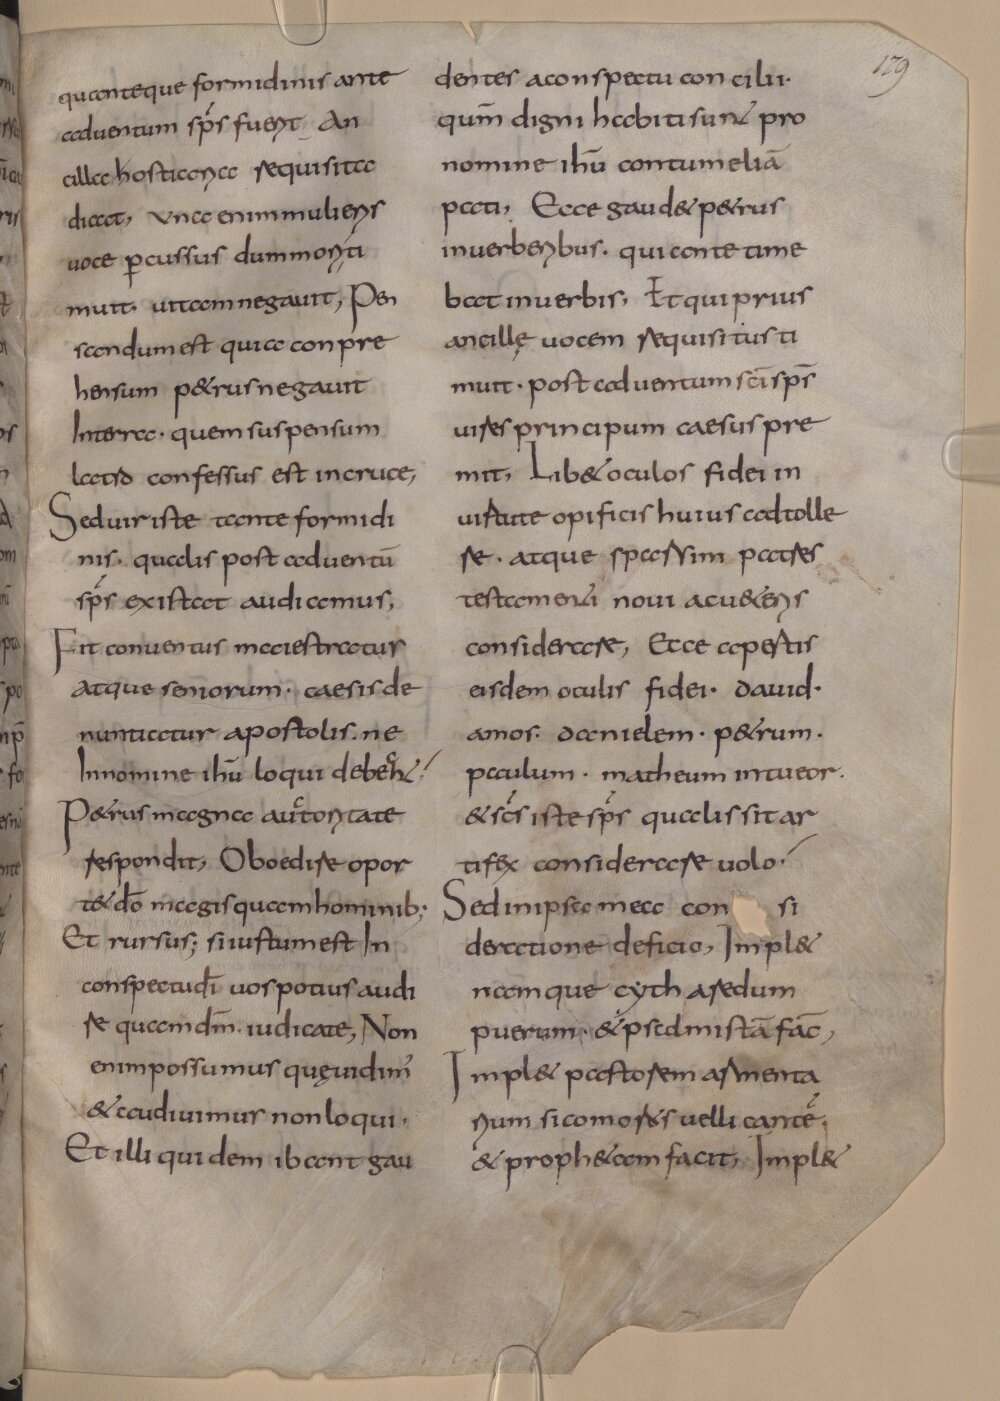 179
quanteque formidinis ante
aduentum sp̄s fuerit An
cilla hostiaria requisita
dicat, Vna enim mulieris
uoce p̲cussus dum mori ti
muit. uitam negauit, Pen
sandum est quia conpre
hensum p&rus negauit
In terra. quem suspensum
latro confessus est in cruce,
Sed uir iste tante formidi
nis. qualis post aduentū
sp̄s existat audiamus,
Fit conuentus maiestratur
atque seniorum. caesis de
nuntiatur apostolis. ne
In nomine ihū loqui debeant
P&rus magna auctoritate
respondit, Oboedire opor
t& dō magis quam hominib;
Et rursus; si iustum est In
conspectu dī uos potius audi
re quam dm̄. iudicate, Non
enim possumus quę uidim̄
& audiuimur non loqui.
Et illi quidem ibant gau
dentes a conspectu concilii.
qum̄ digni habiti sunt pro
nomine ihū contumeliā
pati, Ecce gaud& p&rus
in uerberibus. qui ante time
bat in uerbis, Et qui prius
ancillę uocem requisitus ti
muit. post aduentum scī sp̄s
uires principum caesus pre
mit, Lib& oculos fidei in
uirtute opificis huius adtolle
re. atque sparsim patres
testamenti noui ac u&eris
considerare, Ecce apertis
eisdem oculis fidei. dauid.
amos. danielem. p&rum.
paulum. matheum intueor.
& scs̄ iste sp̄s qualis sit ar
tifex considerare uolo.
Sed in ipsa mea con si
deratione deficio, Impl&
namque cytharedum
puerum. & psalmistā fac̄,
Impl& pastorem armenta
rum sicomoros uellicantē.
& proph&am facit, Impl&